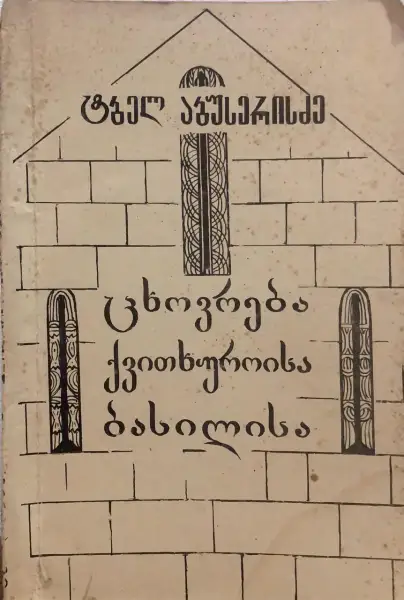 ტბელ აბუსერისძე
ცხოვრება
ქვითხუროისა
ბასილისა